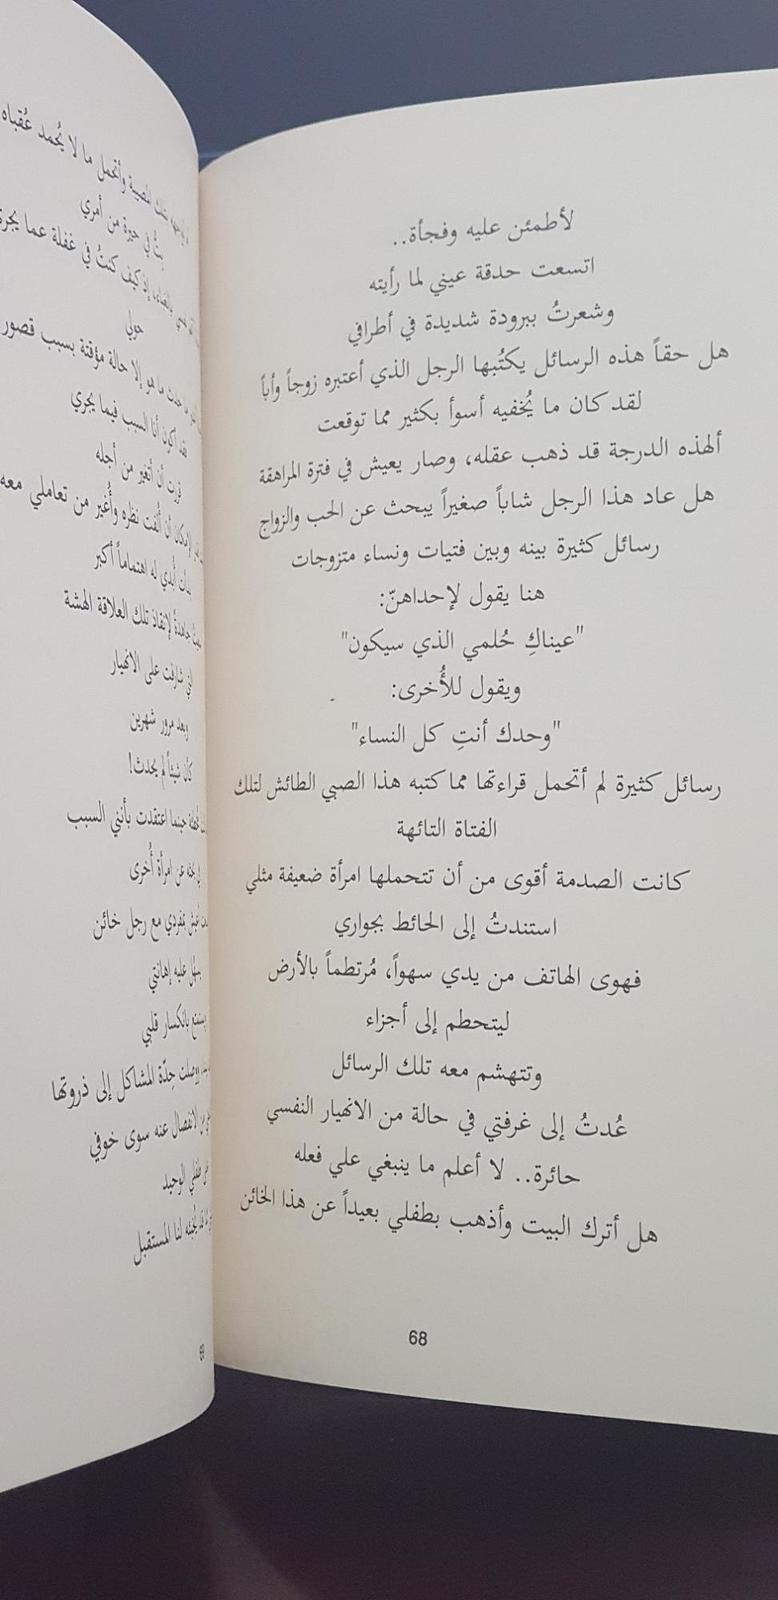 لأطمئن عليه وفجأة..
اتسعت حدقة عيني لما رأيته
وشعرتُ ببرودة شديدة في أطرافي
هل حقاً هذه الرسائل يكتُبها الرجل الذي أعتبره زوجاً وأباً
لقد كان ما يُخفيه أسوأ بكثير مما توقعت
ألهذه الدرجة قد ذهب عقله، وصار يعيش في فترة المراهقة
هل عاد هذا الرجل شاباً صغيراً يبحث عن الحب والزواج
رسائل كثيرة بينه وبين فتيات ونساء متزوجات
هنا يقول لإحداهنّ:
"عيناكِ حُلمي الذي سيكون"
ويقول للأُخرى:
"وحدك أنتِ كل النساء"
رسائل كثيرة لم أتحمل قراءتها مما كتبه هذا الصبي الطائش لتلك
الفتاة التائهة
كانت الصدمة أقوى من أن تتحملها امرأة ضعيفة مثلي
استندتُ إلى الحائط بجواري
فهوى الهاتف من يدي سهواً، مُرتطماً بالأرض
ليتحطم إلى أجزاء
وتتهشم معه تلك الرسائل
عُدتُ إلى غرفتي في حالة من الانهيار النفسي
حائرة.. لا أعلم ما ينبغي علي فعله
هل أترك البيت وأذهب بطفلي بعيداً عن هذا الخائن
68
المصيبة وأتحمل ما لا يُحمد عُقباه
في حيرة من أمري
إذ كيف كنتُ في غفلة عما يجري
حولي
ما هو إلا حالة مؤقتة بسبب قصور
أكون أنا السبب فيما يجري
قررت أن أتغير من أجله
أن ألفت نظره وأُغير من تعاملي معه
أُبدي له اهتماماً أكبر
جاهدةً لإنقاذ تلك العلاقة الهشة
التي شارفت على الانهيار
وبعد مرور شهرين
كأن شيئاً لم يحدث!
حينما اعتقدت بأنني السبب
عن امرأة أُخرى
بمفردي مع رجل خائن
يسهُل عليه إهانتي
بانكسار قلبي
وصلت حِدّة المشاكل إلى ذروتها
الانفصال عنه سوى خوفي
طفلي الوحيد
لنا المستقبل